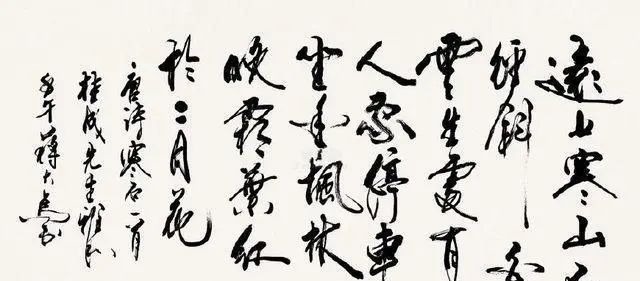 遠上寒山
徑斜白
雲生處有
人家停車
坐愛楓林
晚霜葉紅
於二月花
唐詩寒一首
桂成先生雅
壬午蔣大為書